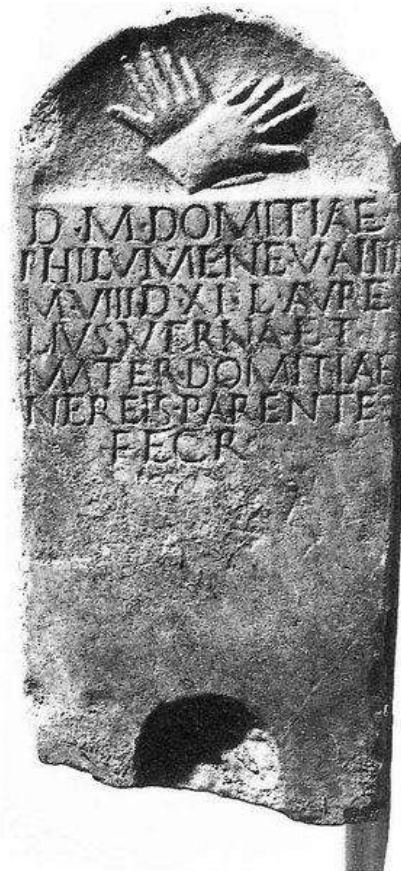 D·M·DOMITIAE
PHILVMENE·V·AIIII
M·VIII·D·XI·L·AVRE
LIVS·VERNA·ET
MATER·DOMITIAE
NEREIS·PARENTE
FECR